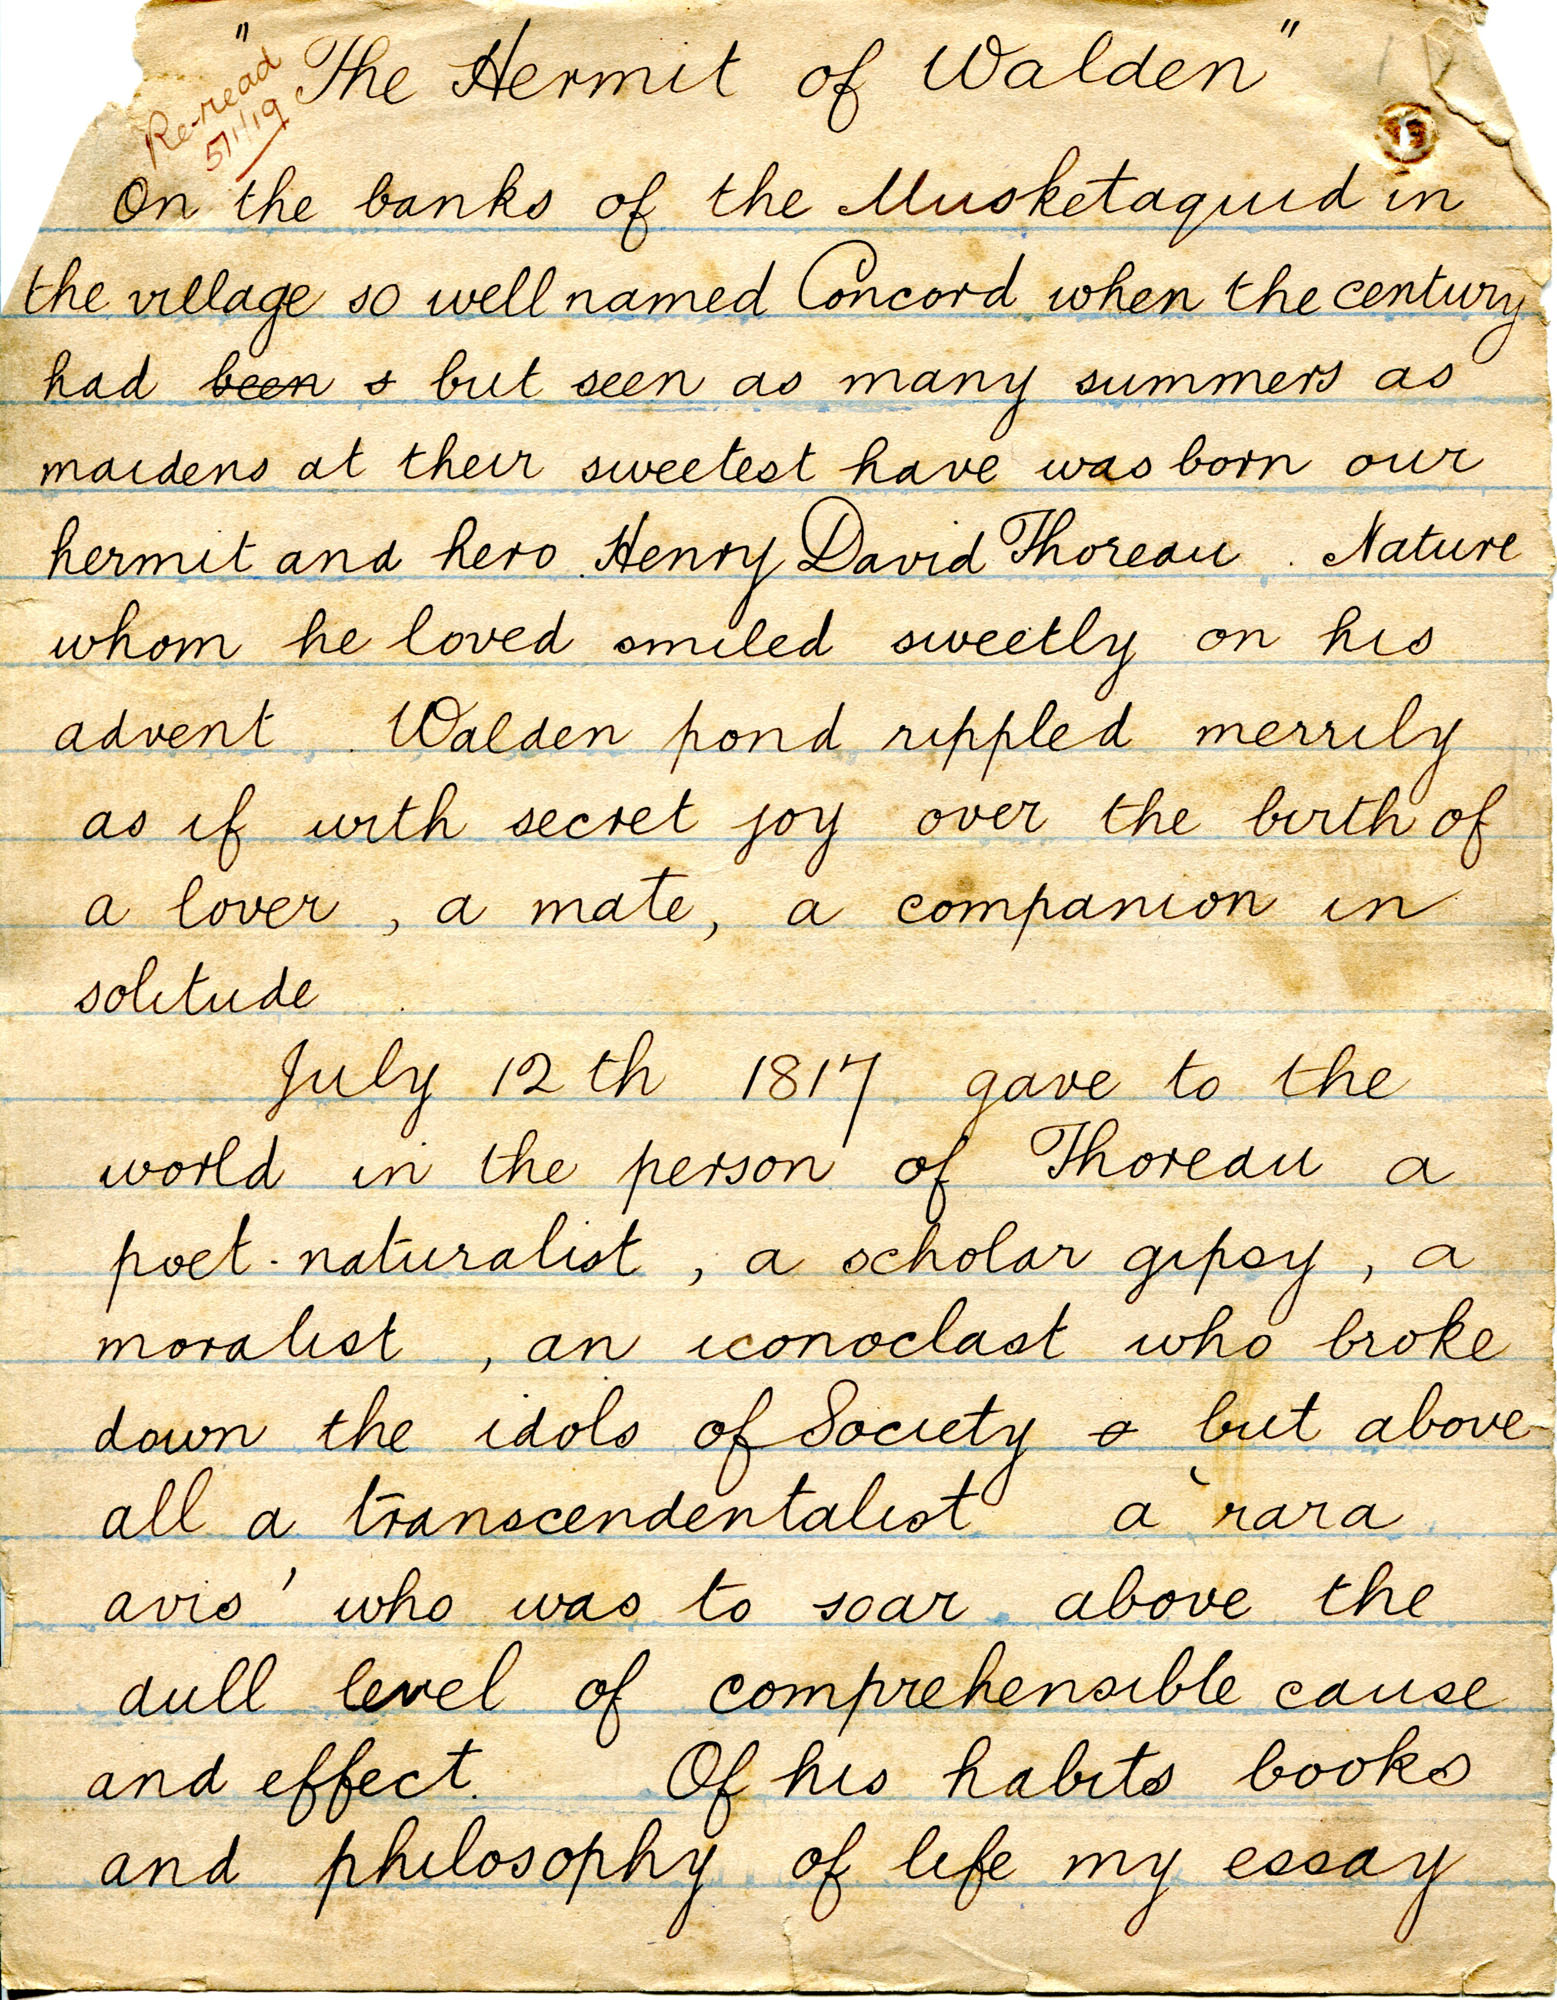 "The Hermit of Walden"
Re-read
5/1/19
1
On the banks of the Musketaquid in
the village so well named Concord when the century
had been s but seen as many summers as
maidens at their sweetest have was born our
hermit and hero Henry David Thoreau. Nature
whom he loved smiled sweetly on his
advent. Walden pond rippled merrily
as if with secret joy over the birth of
a lover, a mate, a companion in
solitude.
July 12th 1817 gave to the
world in the person of Thoreau a
poet-naturalist, a scholar gipsy, a
moralist, an iconoclast who broke
down the idols of Society & but above
all a transcendentalist a 'rara
avis' who was to soar above the
dull level of comprehensible cause
and effect. Of his habits books
and philosophy of life my essay